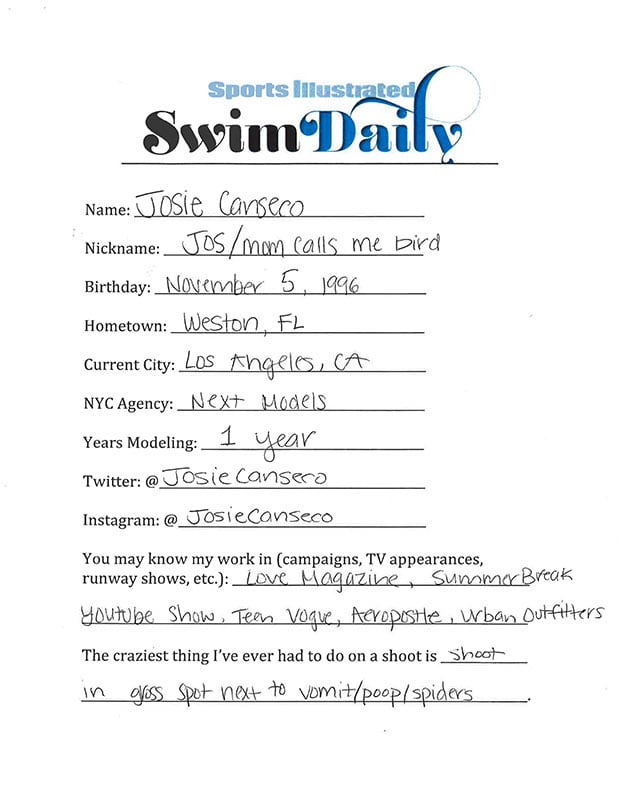 Sports Illustrated
Swim Daily
Name: Josie Canseco
Nickname: Jos/mom calls me bird
Birthday: November 5, 1996
Hometown: Weston, FL
Current City: Los Angeles, CA
NYC Agency: Next Models
Years Modeling: 1 year
Twitter: @ JosieCanseco
Instagram: @ JosieCanseco
You may know my work in (campaigns, TV appearances,
runway shows, etc.): Love Magazine, SummerBreak
Youtube Show, Teen Vogue, Aeropostle, Urban Outfitters
The craziest thing I've ever had to do on a shoot is shoot
in gross spot next to vomit/poop/spiders.